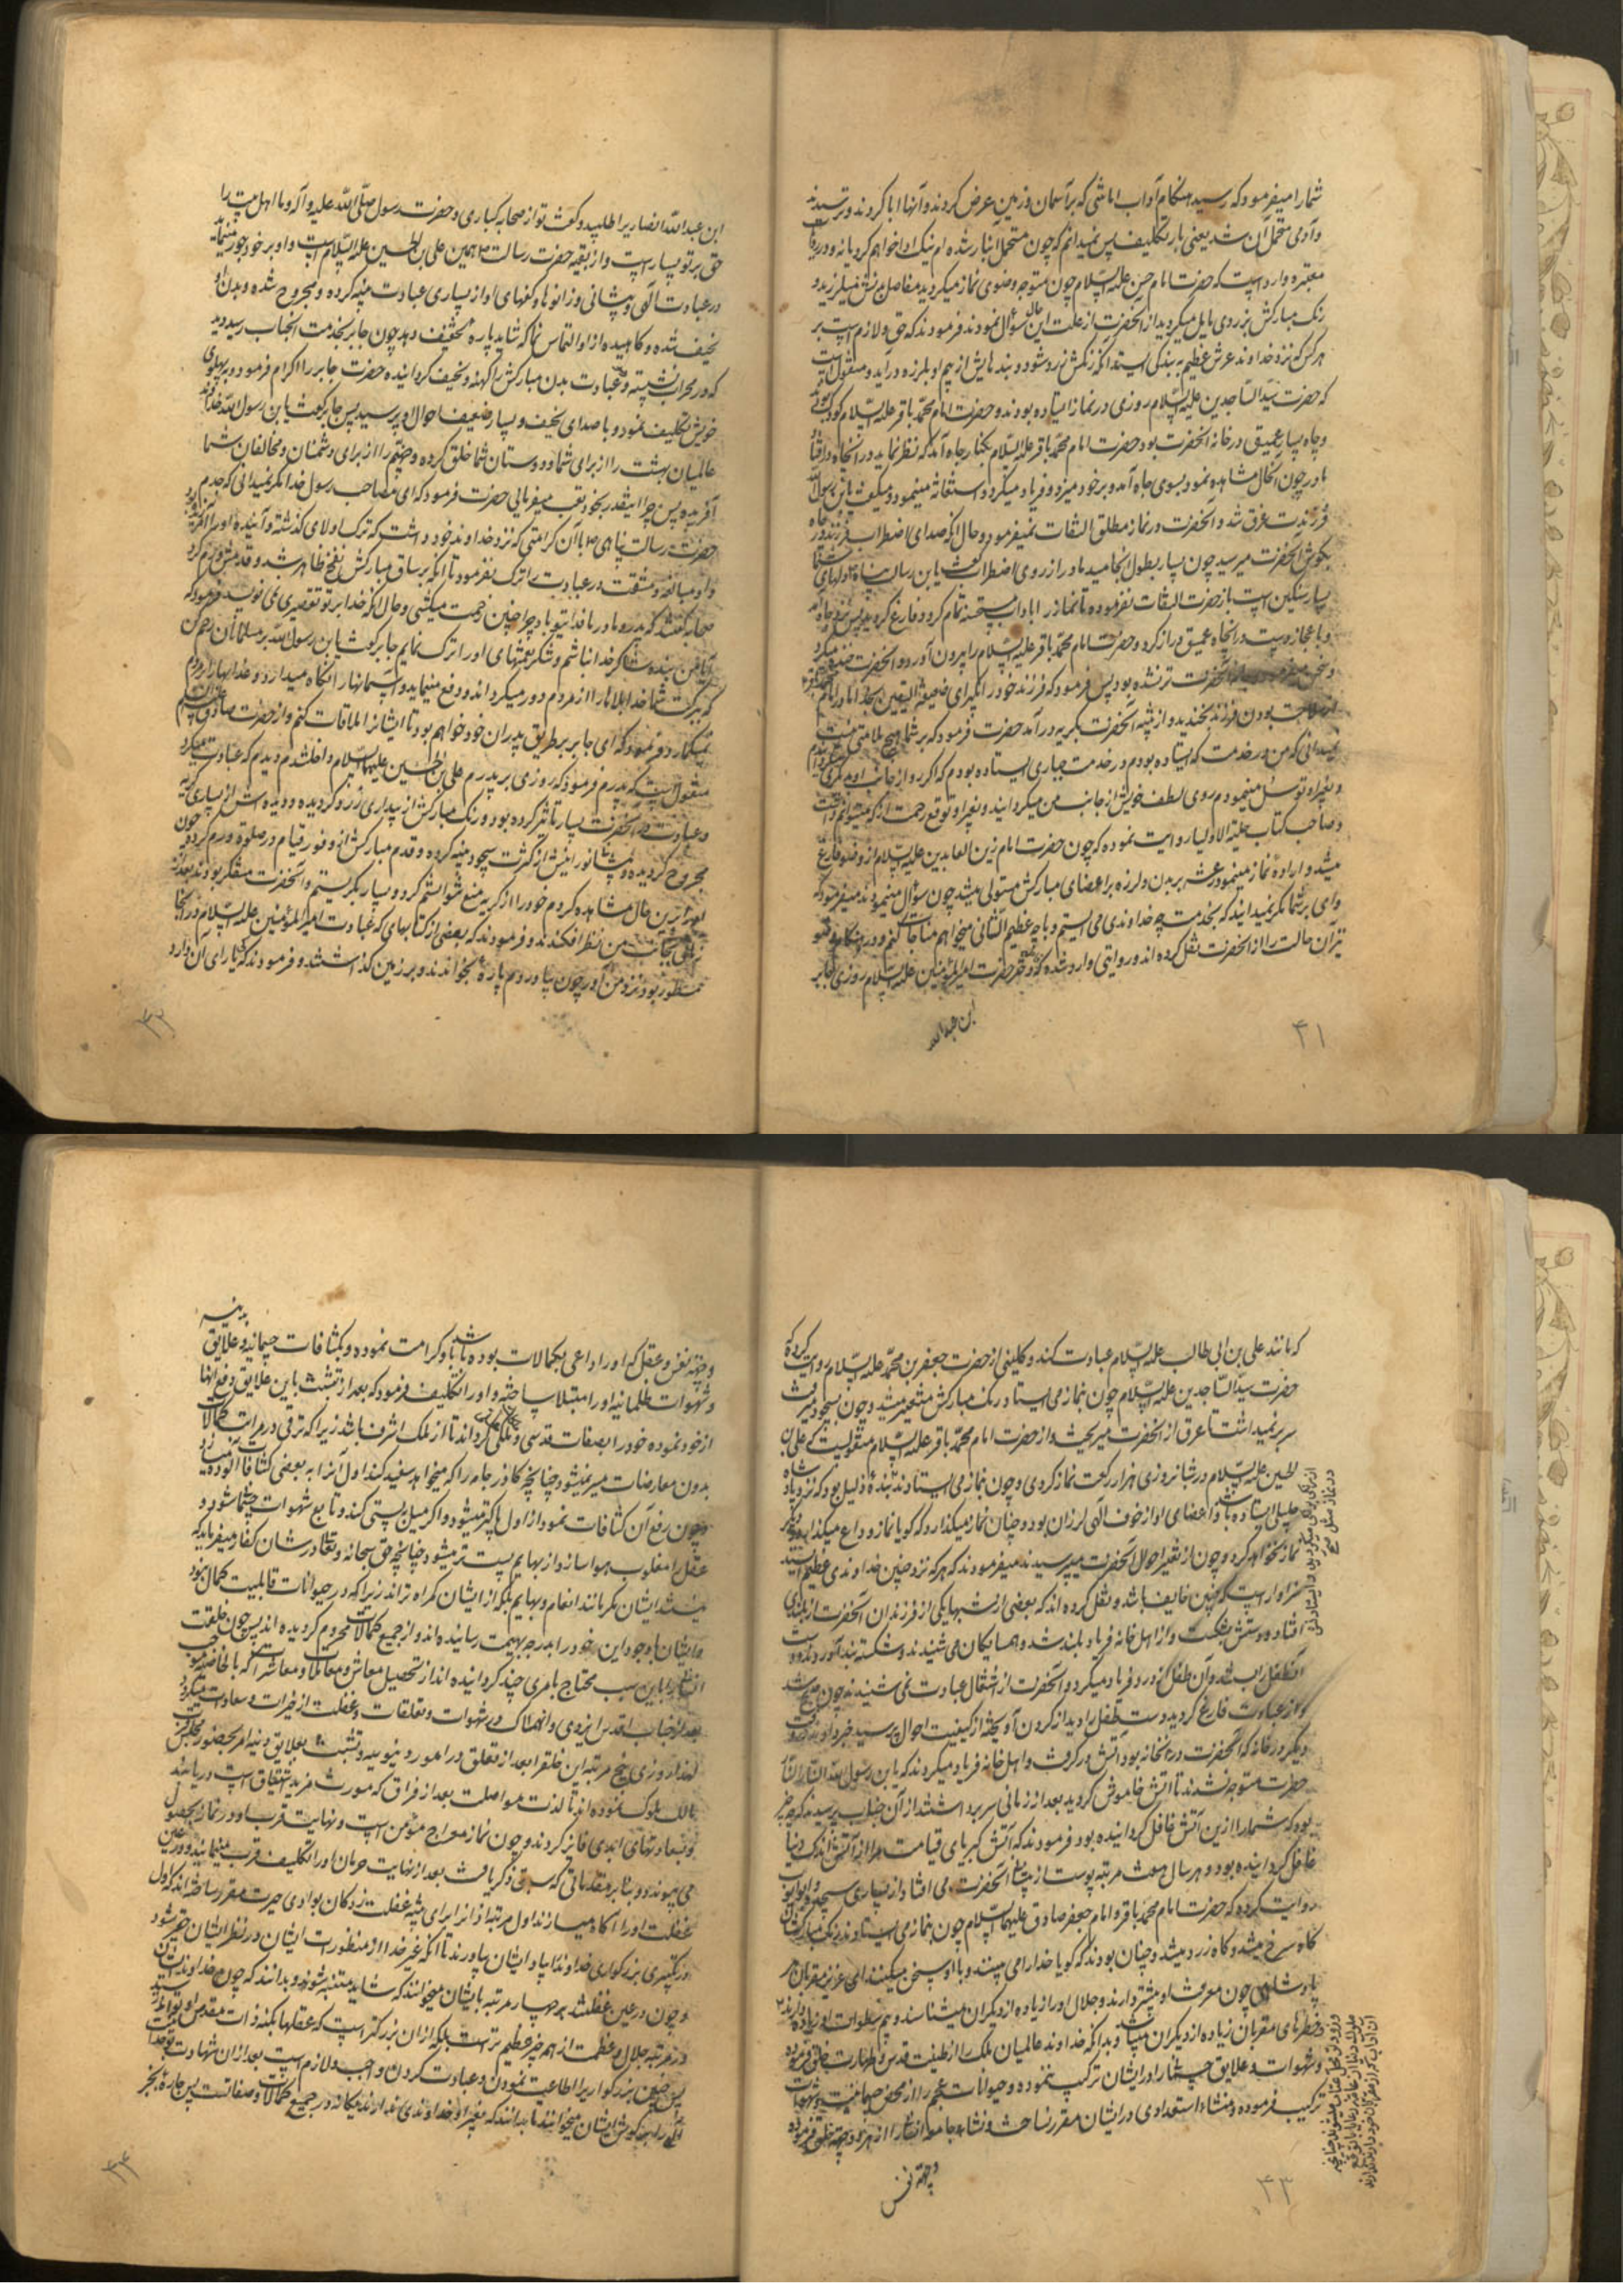 شما را میفرمود که رسید هنگام آداب امانتی که بر آسمان و زمین عرض کردند و آنها ابا کردند و ترسیدند
و آدمی متحمل آن شد یعنی بار تکلیف پس نمیدانم که چون متحمل این بار شده‌ام نیک ادا خواهم کرد یا نه و در روایات
معتبره وارد است که حضرت امام حسن علیه السلام چون متوجه وضوی نماز میگردید مفاصل بدنش میلرزید و
رنگ مبارکش بزردی مایل میگردید از آنحضرت از علت این حال سؤال نمودند فرمودند که حق و لازم است بر
هر کس که نزد خداوند عرش عظیم به بندگی ایستد آنکه رنگش زرد شود و بندهایش از بیم او بلرزه درآید و منقول است
که حضرت سید الساجدین علیه السلام روزی در نماز ایستاده بودند و حضرت امام محمد باقر علیه السلام کودک بودند
و چاه بسیار عمیقی در خانه آنحضرت بود حضرت امام محمد باقر علیه السلام بکنار چاه آمد که نظر نماید در آنچاه افتاد
مادر چون آنحال مشاهده نمود بسوی چاه آمد و بر خود میزد و فریاد میکرد و استغاثه مینمود و میگفت یابن رسول الله
فرزندت غرق شد و آنحضرت در نماز مطلق التفات نمیفرمود و حال آنکه صدای اضطراب فرزند در چاه
بگوش آنحضرت میرسید چون بسیار بطول انجامید مادر از روی اضطراب گفت یابن رسالت پناه دلهای شما
بسیار سنگین است باز حضرت التفات نفرموده تا نماز را با آداب مستحبه تمام کرد و فارغ گردید پس نزد چاه آمد
و باعجاز دست در آنچاه عمیق دراز کرد و حضرت امام محمد باقر علیه السلام را بیرون آورد و آنحضرت خنده میکرد
آنحضرت تر نشده بود پس فرمود که فرزند خود را بگیر ای ضعیفة الیقین بخدا مادر امام
بودن فرزند بخندید و از آنحضرت بگریه درآمد حضرت فرمود که بر شما هیچ ملامتی نیست
نمیدانی که من در خدمت که ایستاده بودم در خدمت جباری ایستاده بودم که اگر رو از جانب او میگردانیدم
و بغیر او توسل مینمودم روی لطف خویش از جانب من میگردانید و بغیر او توقع رحمت از که میتوانم داشت
و صاحب کتاب حلیة الاولیا روایت نموده که چون حضرت امام زین العابدین علیه السلام از وضو فارغ
میشد و اراده نماز مینمود رعشه بر بدن و لرزه بر اعضای مبارکش مستولی میشد چون سؤال مینمودند میفرمود که
وای بر شما مگر نمیدانید که بخدمت چه خداوندی می ایستم و با چه عظیم الشانی میخواهم مناجات کنم و در هنگام وضو
نیز آن حالت را از آنحضرت نقل کرده‌اند و در روایتی وارد شده که دختر حضرت امیر المؤمنین علیه السلام روزی جابر
بن عبدالله
۴۱
ابن عبد الله انصاری را طلبید و گفت تو از صحابه کباری و حضرت رسول صلی الله علیه و آله و ما اهل بیت را
حق بر تو بسیار است و از بقیه حضرت رسالت همین علی بن الحسین علیه السلام است و او بر خود جور مینماید
در عبادت الهی و پیشانی و زانوها و کفهای او از بسیاری عبادت پینه کرده و مجروح شده و بدن او
نحیف شده و کاهیده از او التماس نما که شاید پاره تخفیف دهد چون جابر بخدمت آنجناب رسید دید
که در محراب نشسته و عبادت بدن مبارکش را کهنه و نحیف گردانیده حضرت جابر را اکرام فرمود و بر پهلوی
خویش تکلیف نمود و با صدای نحیف و بسیار ضعیف احوال او پرسید پس جابر گفت یابن رسول الله خداوند
عالمیان بهشت را از برای شما و دوستان شما خلق کرده و جهنم را از برای دشمنان و مخالفان شما
آفریده پس چرا اینقدر بخود تعب میفرمایی حضرت فرمود که ای مصاحب رسول خدا مگر نمیدانی که جدم
حضرت رسالت پناهی با آن کرامتی که نزد خداوند خود داشت که ترک اولای گذشته و آینده او را آمرزیده بود
و او مبالغه و مشقت در عبادت را ترک نفرمود تا آنکه بر ساق مبارکش نفخ ظاهر شد و قدمش ورم کرد
صحابه گفتند که پدر و مادر ما فدای تو باد چرا چنین زحمت میکشی و حال آنکه خدا بر تو تقصیری نمی نویسد فرمود که
آیا من بنده شاکر خدا نباشم و شکر نعمتهای او را ترک نمایم جابر گفت یابن رسول الله بر مسلمانان رحم کن
که ببرکت شما خدا بلاها را از مردم دور میگرداند و دفع مینماید و آسمانها را نگاه میدارد و عذابها را
نمیگمارد فرمود که ای جابر بر طریق پدران خود خواهم بود تا ایشان را ملاقات کنم و از حضرت صادق
منقول است که پدرم فرمود که روزی بر پدرم علی بن الحسین علیهما السلام داخل شدم دیدم که عبادت
و عبادت در آنحضرت بسیار تاثیر کرده بود و رنگ مبارکش از بیداری زرد گردیده و دیده‌اش از بسیاری گریه
مجروح گردیده و پیشانی نورانیش از کثرت سجود پینه کرده و قدم مبارکش از وفور قیام در صلوة ورم کرده چون
او را برین حال مشاهده کردم خود را از گریه منع نتوانستم کرد و بسیار بگریستم و آنحضرت متفکر بودند بعد از
زمانی بجانب من نظر افکندند و فرمودند که بعضی از کتابهای که عبادت امیر المؤمنین علیه السلام در آنجا
مسطور بود نزد من آور چون بیاوردم پاره بخواندند و بر زمین گذاشتند و فرمودند که کیا رای آن دارد
۴۲
که مانند علی بن ابی طالب علیه السلام عبادت کند و کلینی از حضرت جعفر بن محمد علیه السلام روایت کرده که
حضرت سید الساجدین علیه السلام چون بنماز می ایستاد رنگ مبارکش متغیر میشد و چون بسجود میرفت
سر بر نمیداشت تا عرق از آنحضرت میریخت و از حضرت امام محمد باقر علیه السلام منقولست که علی بن
الحسین علیه السلام در شبانه روزی هزار رکعت نماز کردی و چون بنماز می ایستاد مانند بنده ذلیل بود که نزد پادشاه
جلیلی ایستاده باشد و اعضای او از خوف الهی لرزان بود و چنان نماز میگذارد که گویا نماز وداع میکند و دیگر
نماز نخواهد کرد و چون از تغیر احوال آنحضرت میپرسیدند میفرمودند که هر که نزد چنین خداوندی عظیم ایستد
سزاوار است که چنین خایف باشد و نقل کرده‌اند که بعضی از شبها یکی از فرزندان آنحضرت از بلندی
افتاد و دستش شکست و از اهل خانه فریاد بلند شد و همسایگان می شنیدند و شکسته بند آوردند و دست
آنطفل را بست و آن طفل از درد فریاد میکرد و آنحضرت از اشتغال عبادت نمی شنیدند چون صبح شد
و از عبادت فارغ گردید دست طفل را دید از گردن آویخته از کیفیت احوال پرسید خبر دادند و وقت
دیگر در خانه که آنحضرت در آنخانه بود آتش در گرفت و اهل خانه فریاد میکردند که یابن رسول الله النار النار
حضرت متوجه نشدند تا آتش خاموش گردید بعد از زمانی سر برداشتند از آن جناب پرسیدند که چه چیز
بود که شما را ازین آتش غافل گردانیده بود فرمودند که آتش کبرای قیامت مرا از آتش اندک دنیا
غافل گردانیده بود و هر سال هفت مرتبه پوست از پیشانی آنحضرت می افتاد از بسیاری سجود
روایت کرده که حضرت امام محمد باقر و امام جعفر صادق علیهما السلام چون بنماز می ایستادند رنگ مبارکشان
گاه سرخ میشد و گاه زرد میشد و چنان بودند که گویا خدا را می بینند و با او سخن میگویند ای عزیز مقربان هر
پادشاهی چون معرفت او بیشتر دارند و جلال او را زیاده از دیگران میشناسند و بیم سطوات او زیاده دارند
و خطرهای مقربان زیاده از دیگران میباشد و بدانکه خداوند عالمیان ملک را از طینت قدس و طهارت خلق فرموده
و شهوات و علایق جسمانی را در ایشان ترکیب ننموده و حیوانات عجم را از محض جسمانیت و شهوات
ترکیب فرموده و منشاء استعدادی در ایشان مقرر نساخت و نشاء جامعه انسان را از هر دو جهة خلق فرموده
و جهة نفس
۴۳
بدنیه
و جهة نفس و عقل که او را داعی بکمالات بوده باشد باو کرامت نموده و بکثافات جسمانیه و علایق
و شهوات ظلمانیه او را مبتلا ساخته و او را تکلیف فرمود که بعد از تشبث باین علایق و رفع آنها
از خود نموده خود را بصفات قدسی و ملکی گرداند تا از ملک اشرف باشد زیرا که ترقی در مراتب کمالات
بدون معارضات میسر نمیشود چنانچه گاذر جامه را که میخواهد سفید کند اول آنرا به بعضی کثافات آلوده میسازد
و چون رفع آن کثافات نمود از اول پاکتر میشود و اگر میل به پستی کند و تابع شهوات جسمانی شود و
عقل را مغلوب هوا سازد از بهایم پست تر میشود چنانچه حق سبحانه و تعالی در شان کفار میفرماید که
نیستند ایشان مگر مانند انعام و بهایم بلکه از ایشان گمراه تراند زیرا که در حیوانات قابلیت کمال نبود
و ایشان با وجود این خود را بدرجه بهیمیت رسانیده‌اند و از جمیع کمالات محروم گردیده‌اند پس چون خلقت
انسان را باین سبب محتاج بامری چند گردانیده‌اند از تحصیل معاش و معاملات و معاشرات که بالخاصیه موجب
بعد از جناب اقدس ایزدی و انهماک در شهوات و تعلقات و غفلت از خیرات و سعادات میگردد
لهذا روزی پنج مرتبه این خلق را بعد از تعلق در امور دنیویه و تشبث بعلایق دنیه امر بحضور مجلس
مالک ملوک نموده‌اند تا لذت مواصلت بعد از فراق که مورث مزید اشتیاق است دریابند
و بسعادتهای ابدی فایز گردند و چون نماز معراج مؤمن است و نهایت قرب او در نماز بحصول
می پیوندد و بنابر مقدماتی که سبق ذکر یافت بعد از نهایت حرمان او را تکلیف قرب مینمایند و در عین
غفلت او را آگاه میسازند اول مرتبه اذان را برای تنبیه غفلت زدگان بوادی حیرت مقرر ساخته‌اند که اول
در تکبیر بزرگواری خداوند را بیاد ایشان بیاورند تا آنکه غیر خدا از منظورات ایشان در نظر ایشان حقیر شود
و چون در عین غفلتند چهار مرتبه بایشان میخوانند که شاید متنبه شوند و بدانند که چون خداوند ایشان
در مرتبه جلال و عظمت از همه چیز عظیم تر است بلکه از آن بزرگتر است که عقلها بکنه ذات مقدس او تواند رسید
پس چنین بزرگواری را اطاعت نمودن و عبادت کردن واجب و لازم است بعد از آن شهادت بتوحید
الهی را بگوش ایشان میخوانند تا بدانند که بغیر او خداوندی ندارند و یگانه در جمیع کمالات و صفاتست پس چاره بجز
۴۴